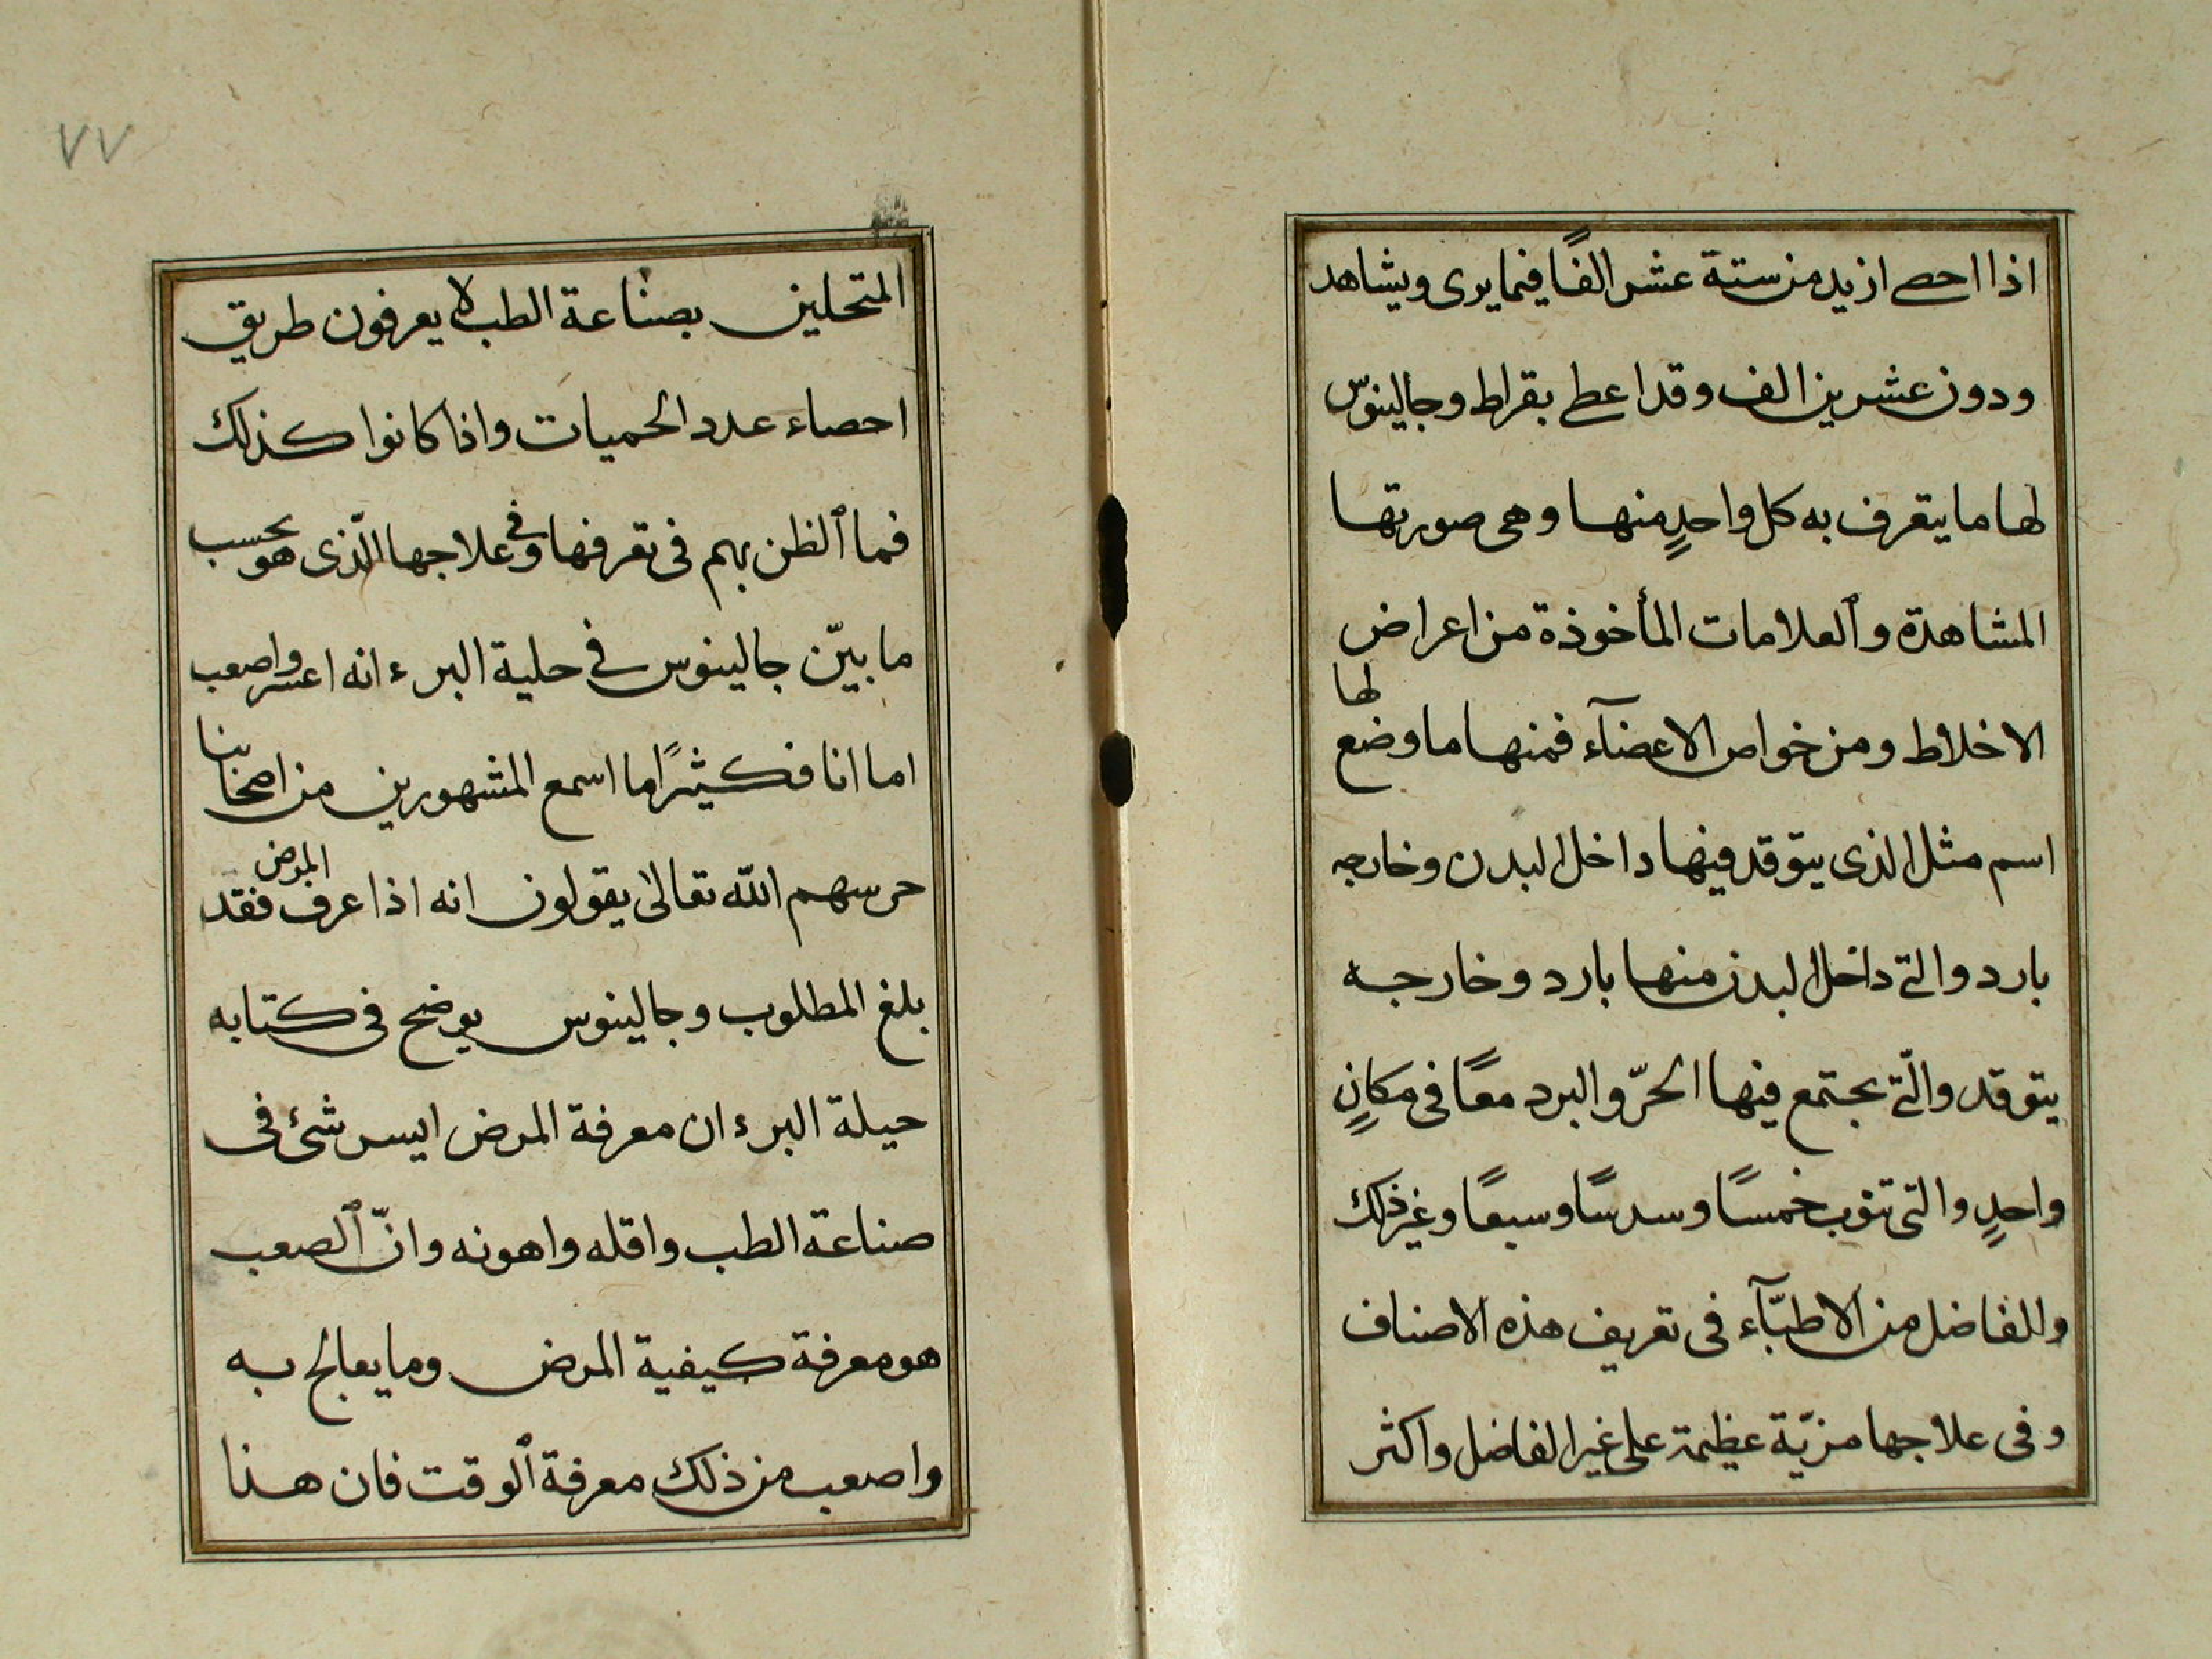 اذا احصے ازيد من ستة عشر الفًا فيما يرى ويشاهد
ودون عشرين الف وقد اعطے بقراط وجالينوس
لها ما يتعرف به كل واحدٍ منها وهى صورتها
المشاهدة وٱلعلامات المأخوذة من اعراض
الاخلاط ومن خواص الاعضآء فمنها ما وضع لها
اسم مثل الذى يتوقد فيها داخل البدن وخارجه
بارد والتے داخل البدن منها بارد وخارجه
يتوقد والّتے يجتمع فيها الحرّ والبرد معًا فى مكانٍ
واحدٍ والتى تنوب خمسًا وسدسًا وسبعًا وغير ذلك
وللفاضل من الاطبّآء فى تعريف هذه الاصناف
وفى علاجها مزيّة عظيمة على غير الفاضل واكثر
٧٧
المتحلين بصناعة الطب لا يعرفون طريق
احصاء عدد الحميات واذا كانوا كذلك
فما ٱلظن بهم فى تعرفها وفى علاجها الّذى هو بحسب
ما بيّن جالينوس فے حلية البرء انه اعسر واصعب
اما انا فكثيرًا ما اسمع المشهورين من اصحابنا
حرسهم اللّه تعالى يقولون انه اذا عرف المرض فقد
بلغ المطلوب وجالينوس يوضح فى كتابه
حيلة البرء ان معرفة المرض ايسر شئ فى
صناعة الطب واقله واهونه وانّ ٱلصعب
هو معرفة كيفية المرض وما يعالج به
واصعب من ذلك معرفة ٱلوقت فان هذا